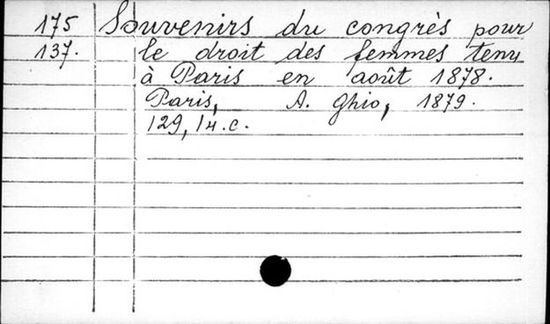 175 Souvenirs du congrès pour
137. le droit des femmes tenu
à Paris en août 1878.
Paris, A. Ghio, 1879.
129, 14.c.